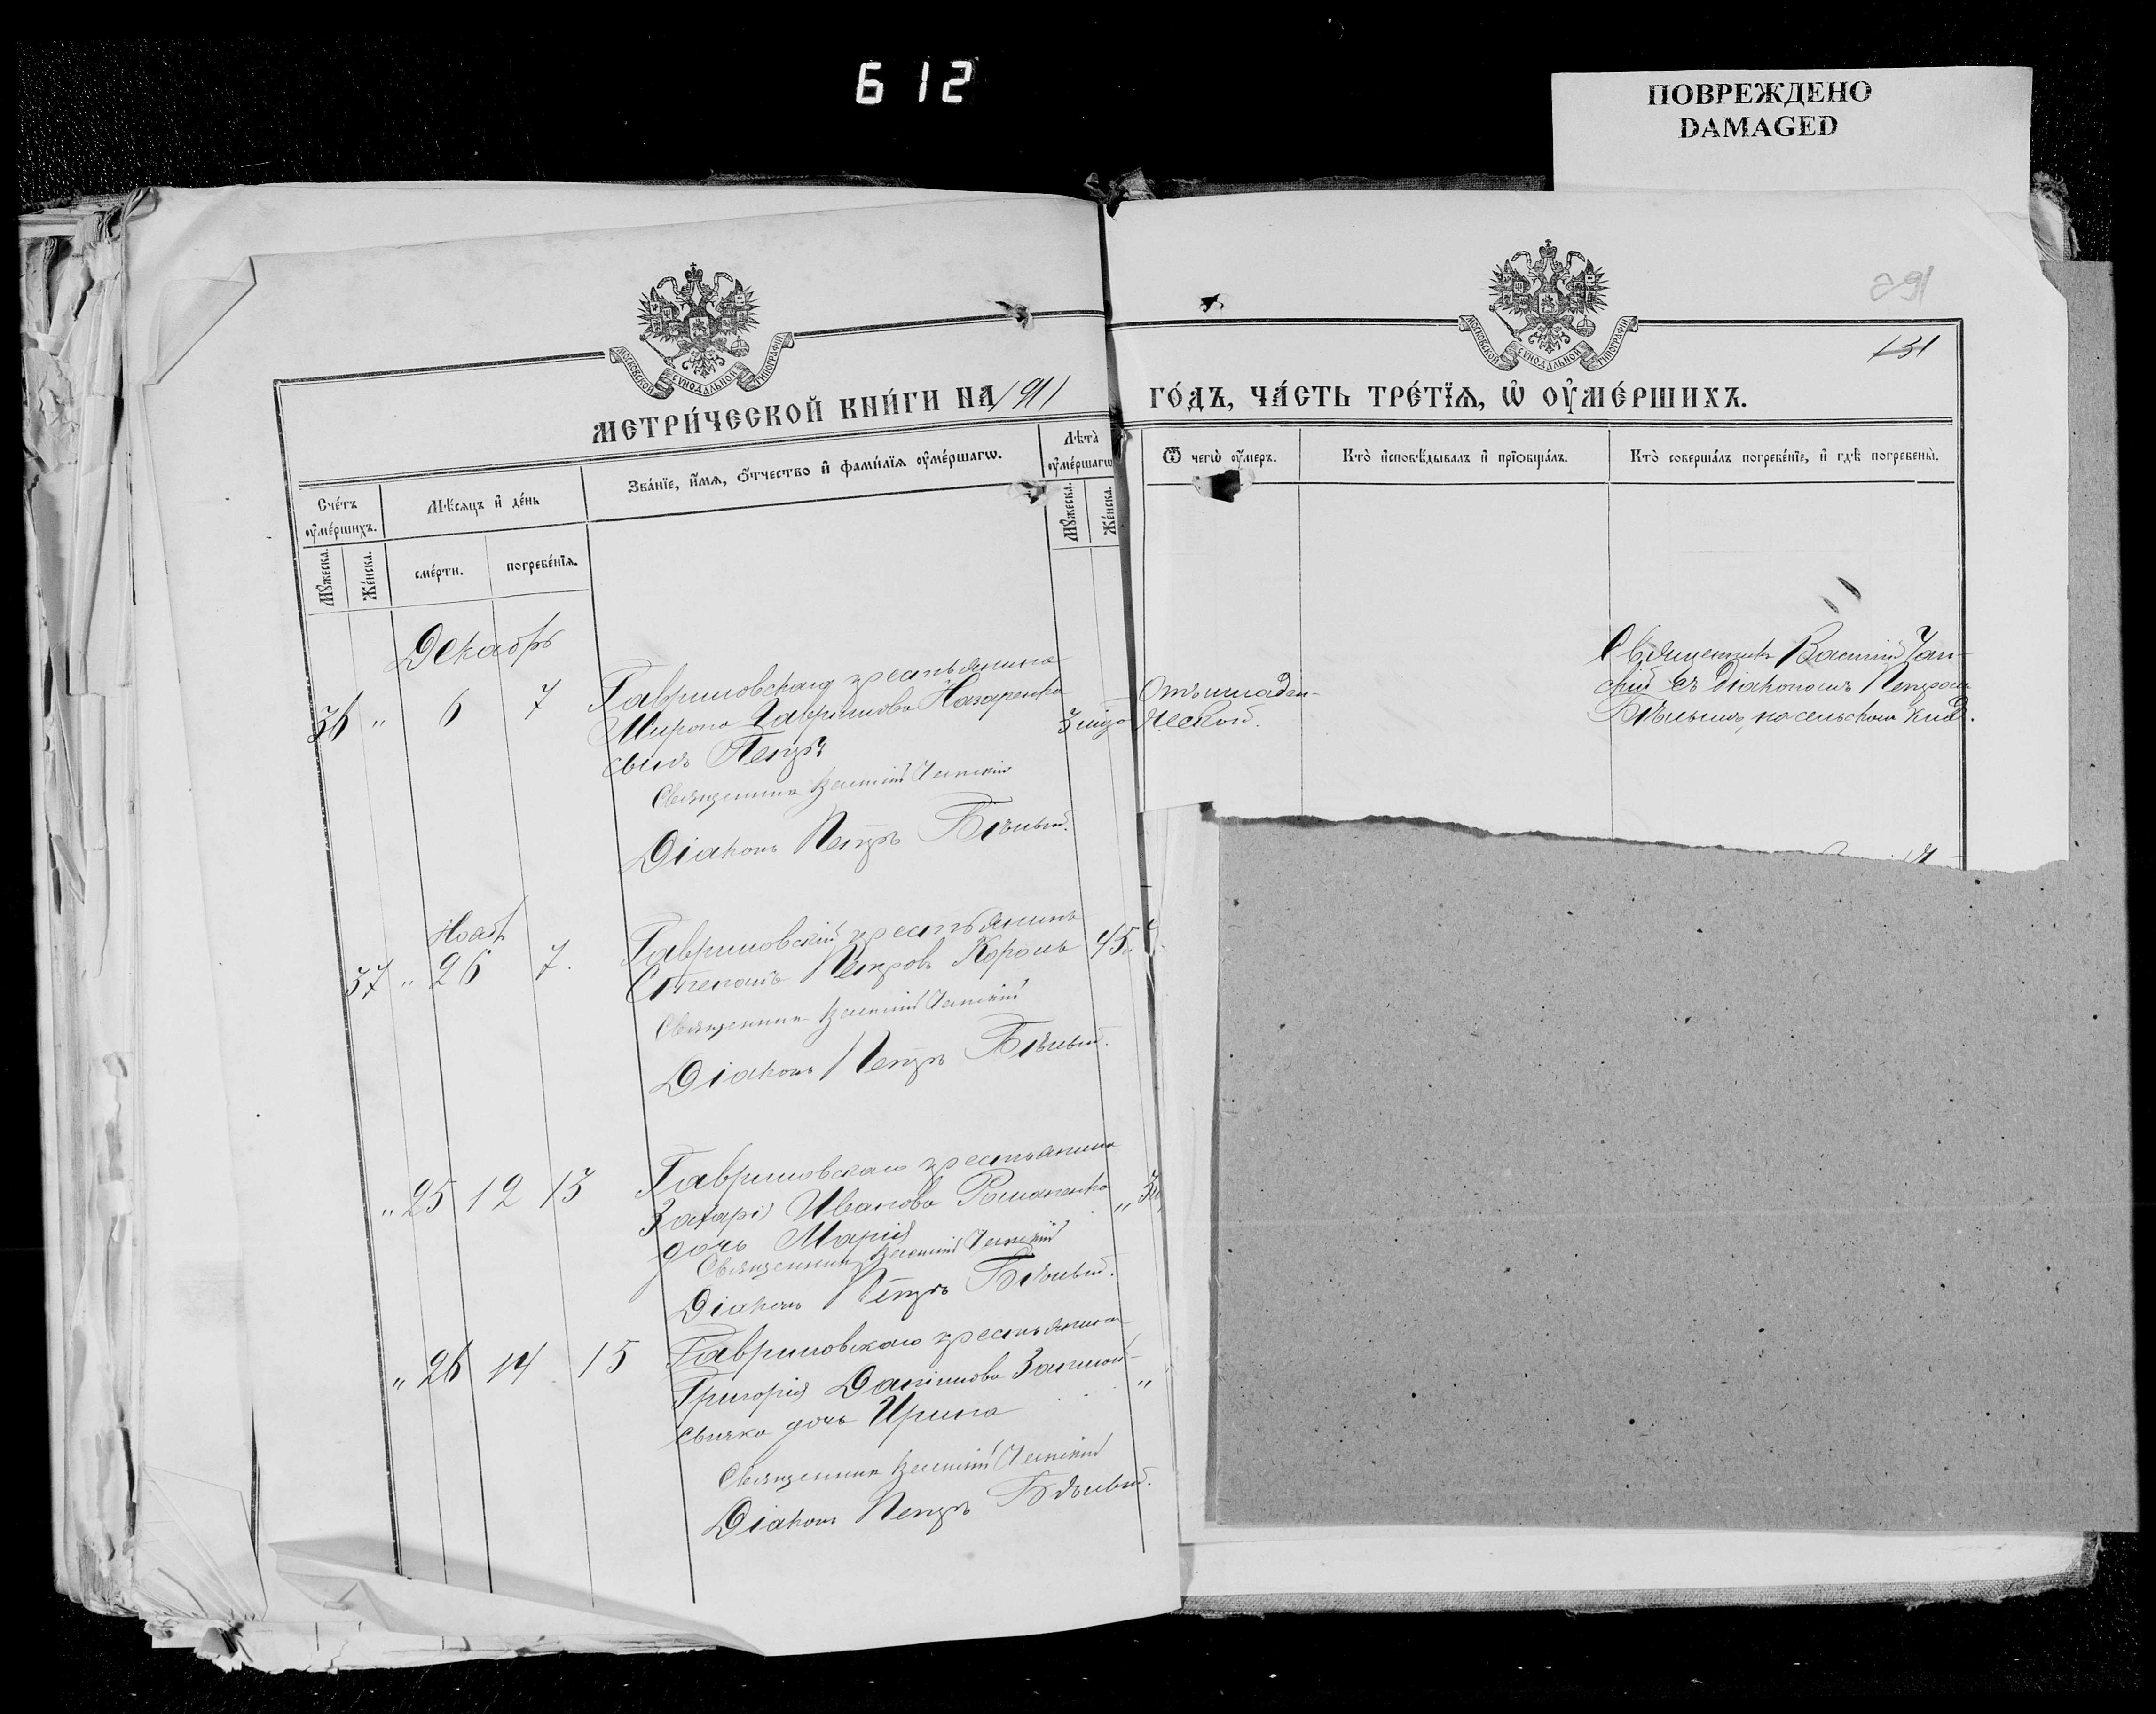 612
ПОВРЕЖДЕНО
DAMAGED
291
131
МОСКОВСКОЙ СУНОДАЛЬНОЙ ТИПОГРАФІИ
МОСКОВСКОЙ СУНОДАЛЬНОЙ ТИПОГРАФІИ
МЕТРИ́ЧЕСКОЙ КНИ́ГИ НА 1911
ГО́ДЪ, ЧА́СТЬ ТРЕ́ТЇѦ, Ѡ҆ ОУ҆МЕ́РШИХЪ.
Сче́тъ оу҆ме́ршихъ.
Мꙋ́жеска.
Же́нска.
Мѣ́сяцъ и҆ де́нь
сме́рти.
погребе́нїѧ.
Зва́нїе, и҆́мѧ, ѻ҆́тчество и҆ фами́лїѧ оу҆ме́ршагѡ.
Лѣ́та̀ оу҆ме́ршагѡ
Мꙋ́жеска.
Же́нска.
Ѿ чегѡ̀ оу҆́меръ.
Кто̀ и҆сповѣ́дывалъ и҆ прїѻбща́лъ.
Кто̀ соверша́лъ погребе́нїе, и҆ гдѣ̀ погребены̀.
Декабрь
36 " 6 7 Гавриловскаго крестьянина
Мирона Гаврилова Назаренко
сынъ Петръ
Священникъ Василій
Діаконъ Петръ Бѣлый.
Отъ младен-
ческой.
Священникъ Василій
скій съ діакономъ Петромъ
Бѣлымъ, на сельском клад.
Нояб.
37 " 26 7. Гавриловскій крестьянинъ
Степанъ Петровъ Король 45
Священникъ Василій
Діаконъ Петръ Бѣлый.
" 25 12 13 Гавриловскаго крестьянина
Захарія Иванова Романенко "
дочь Марія
Священникъ Василій
Діаконъ Петръ Бѣлый.
" 26 14 15 Гавриловскаго крестьянина
Григорія Даніилова "
дочь Ирина
Священникъ Василій
Діаконъ Петръ Бѣлый.